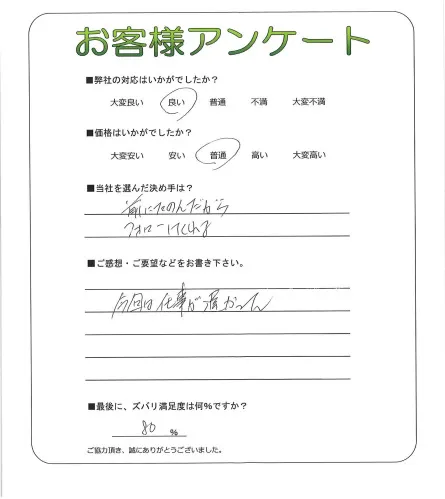 お客様アンケート
■弊社の対応はいかがでしたか?
大変良い 良い 普通 不満 大変不満
■価格はいかがでしたか?
大変安い 安い 普通 高い 大変高い
■当社を選んだ決め手は?
前にたのんだから
フォローしてくれる
■ご感想・ご要望などをお書き下さい。
今回は仕事が
■最後に、ズバリ満足度は何%ですか?
80 %
ご協力頂き、誠にありがとうございました。